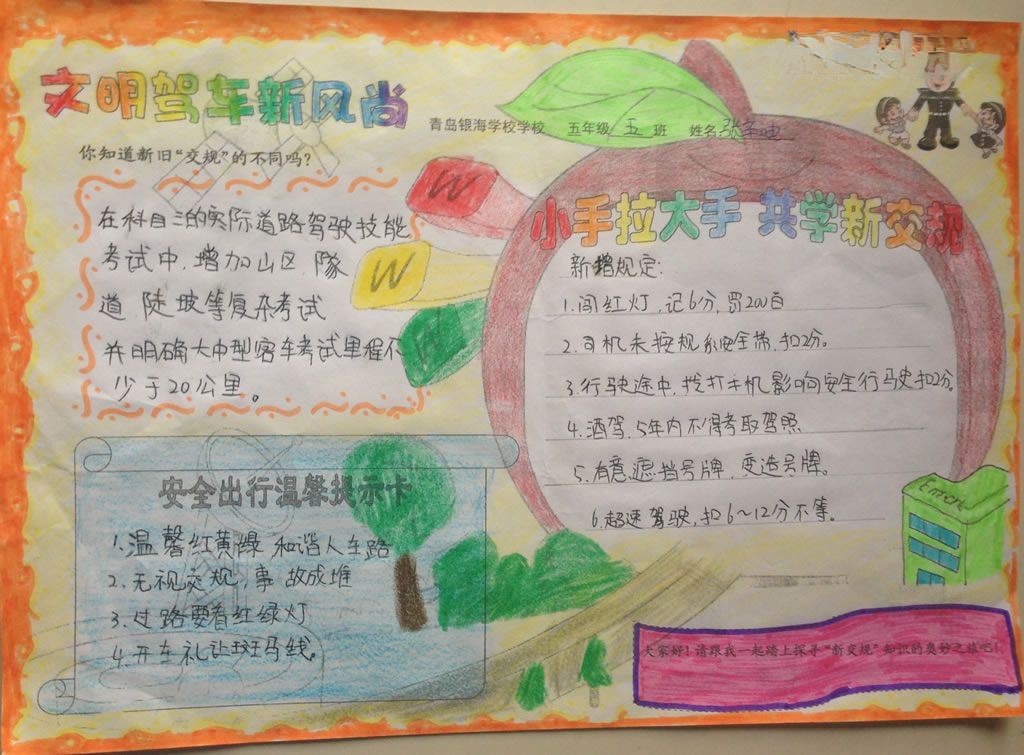 文明驾车新风尚
青岛银海学校学校 五年级 五 班 姓名
你知道新旧“交规”的不同吗？
在科目三的实际道路驾驶技能
考试中，增加山区、隧
道、陡坡等复杂考试
并明确大中型客车考试里程不
少于20公里。
W
W
小手拉大手 共学新交规
新增规定：
1.闯红灯，记6分，罚200百
2.司机未按规系安全带，扣2分。
3.行驶途中，拨打手机影响安全行驶扣2分。
4.酒驾，5年内不得考取驾照
5.有意遮挡号牌，变造号牌。
6.超速驾驶，扣6～12分不等。
安全出行温馨提示卡
1.温馨红黄绿 和谐人车路
2.无视交规，事故成堆
3.过路要看红绿灯
4.开车礼让斑马线。
大家好！请跟我一起踏上探寻“新交规”知识的奥妙之旅吧！